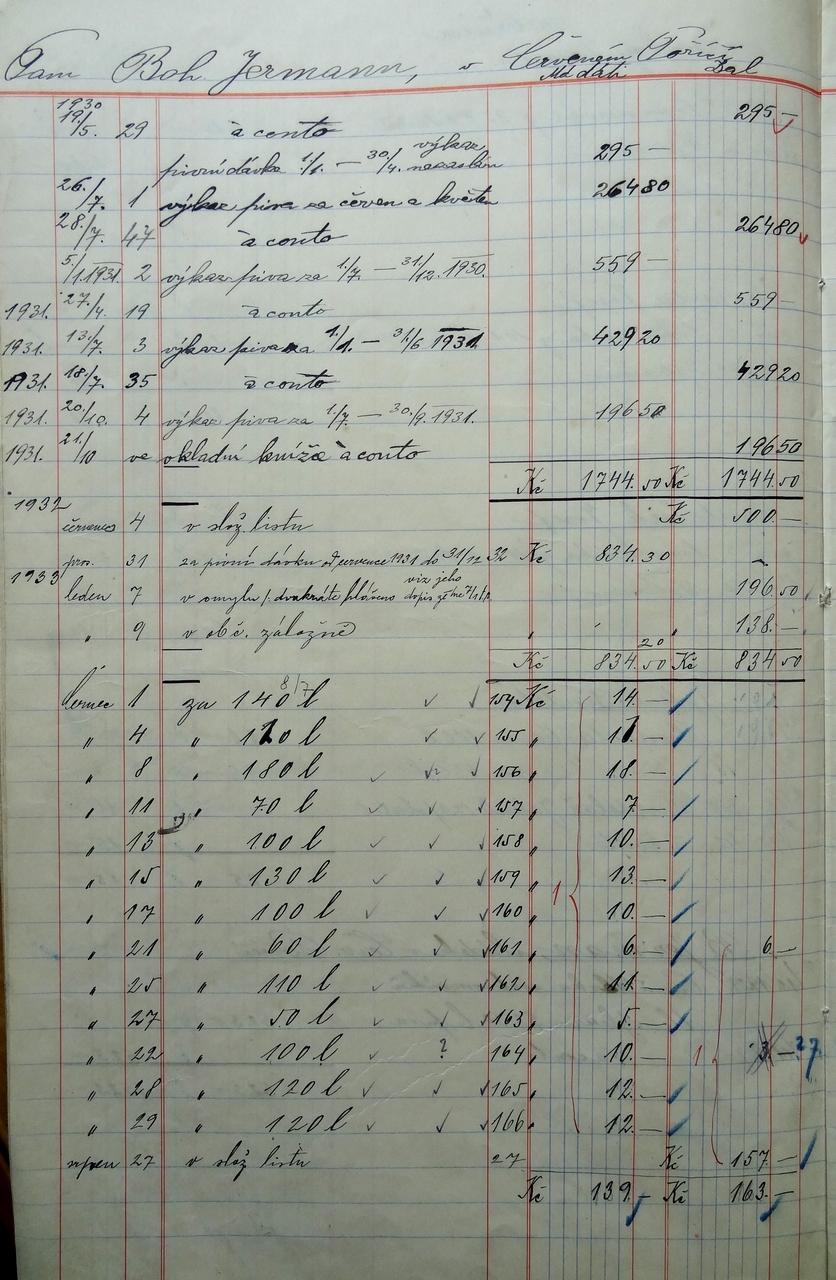 Pan Boh. Jermann, v Červeném Poříčí
Má dáti Dal
1930
19./5. 29 à conto 295 —
pivní dávka 1/1. — 30./4. výkaz nezaslán 295 —
26./7. 1 výkaz piva za červen a květen 264 80
28./7. 47 à conto 264 80
5./1. 1931. 2 výkaz piva za 1./7. — 31./12. 1930. 559 —
1931. 27./4. 19 à conto 559 —
1931. 13./7. 3 výkaz piva za 1./1. — 31./6 1931. 429 20
1931. 18./7. 35 à conto 429 20
1931. 20./10. 4 výkaz piva za 1./7. — 30./9. 1931. 196 50
1931. 21./10 ve vkladní knížce à conto 196 50
Kč 1744.50 Kč 1744.50
1932
červenec 4 v slož. listu Kč 500.—
pros. 31 za pivní dávku od července 1931 do 31/12 32 Kč 834.30
1933
leden 7 v omylu /: dvakráte hlášeno viz jeho dopis ze dne
196.50
" 9 v obč. záložně " " " 138.—
20
Kč 834.50 Kč 834 50
8/7
červenec 1 za 140 l 154 Kč 14.—
" 4 " 110 l 155 " 11.—
" 8 " 180 l 156 " 18.—
" 11 " 70 l 157 " 7.—
" 13 " 100 l 158 " 10.—
" 15 " 130 l 159 " 13.—
" 17 " 100 l 160 " 10.—
" 21 " 60 l 161 " 6.— 6.—
" 25 " 110 l 162 " 11.—
" 27 " 50 l 163 " 5.—
" 22 " 100 l ? 164 " 10.— 3 — 27
" 28 " 120 l 165 " 12.—
" 29 " 120 l 166 " 12.—
srpen 27 v slož listu 27 Kč 157.—
Kč 139.— Kč 163.—